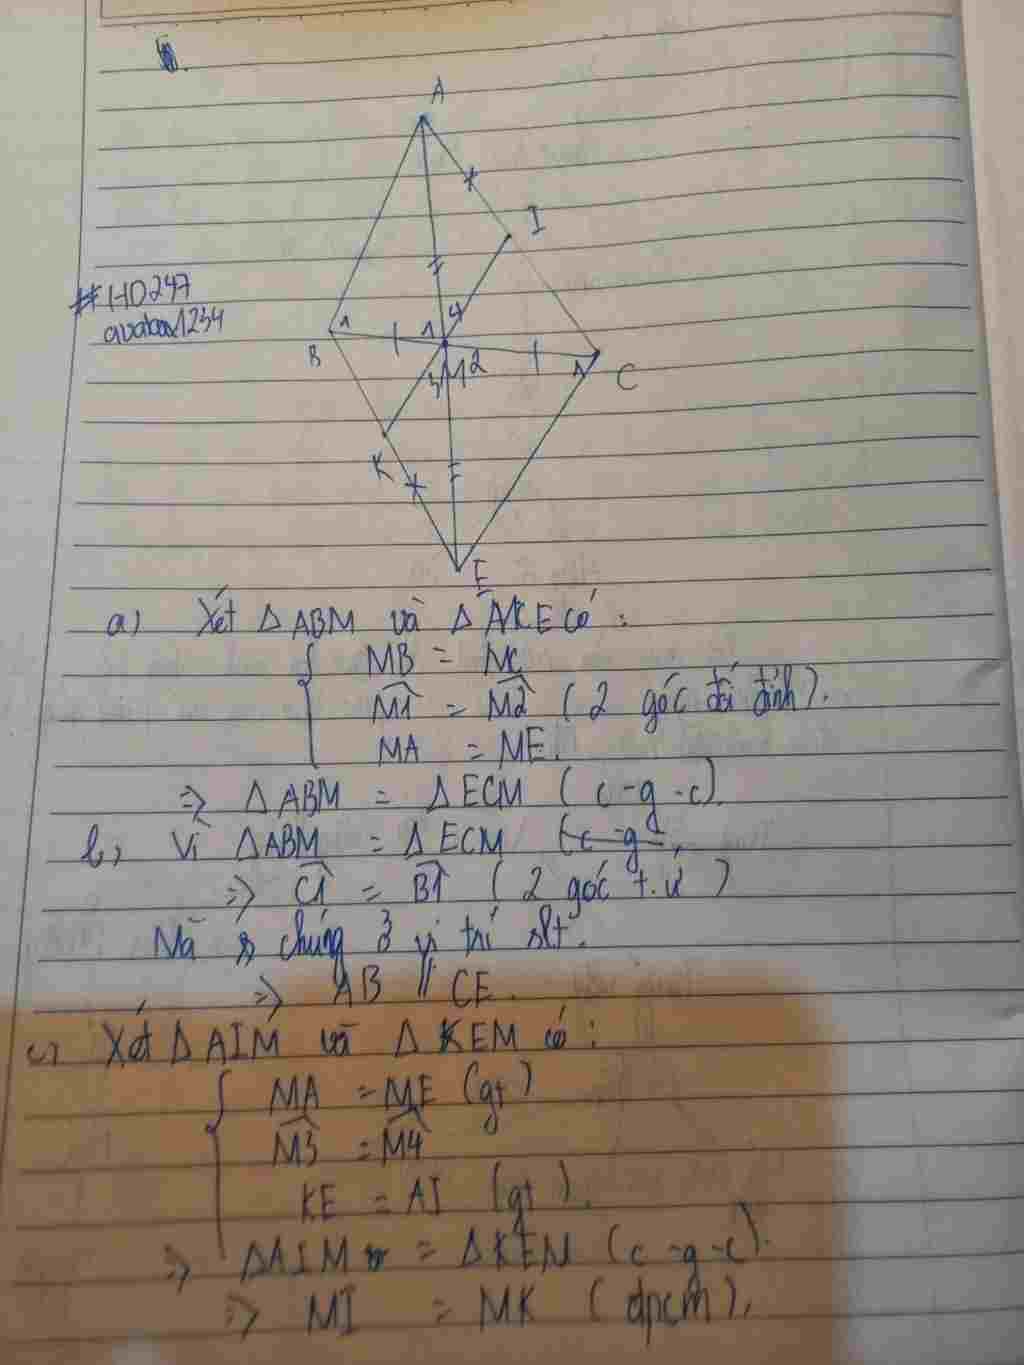 A
I
#HD247
avatar1234
1
4
1
B
3
M
2
1
C
K
E
a) Xét Δ ABM và Δ có :
MB = MC
M1 = M2 ( 2 góc đối đỉnh ).
MA = ME.
=> Δ ABM = Δ ECM ( c - g - c ).
b, Vì Δ ABM = Δ ECM
=> C1 = B1 ( 2 góc t. ứ )
Mà chúng ở vị trí slt.
=> AB // CE.
c, Xét Δ AIM và Δ KEM có :
MA = ME (gt)
M3 = M4
KE = AI (gt).
=> Δ AIM = Δ KEM ( c - g - c ).
=> MI = MK ( đpcm ),